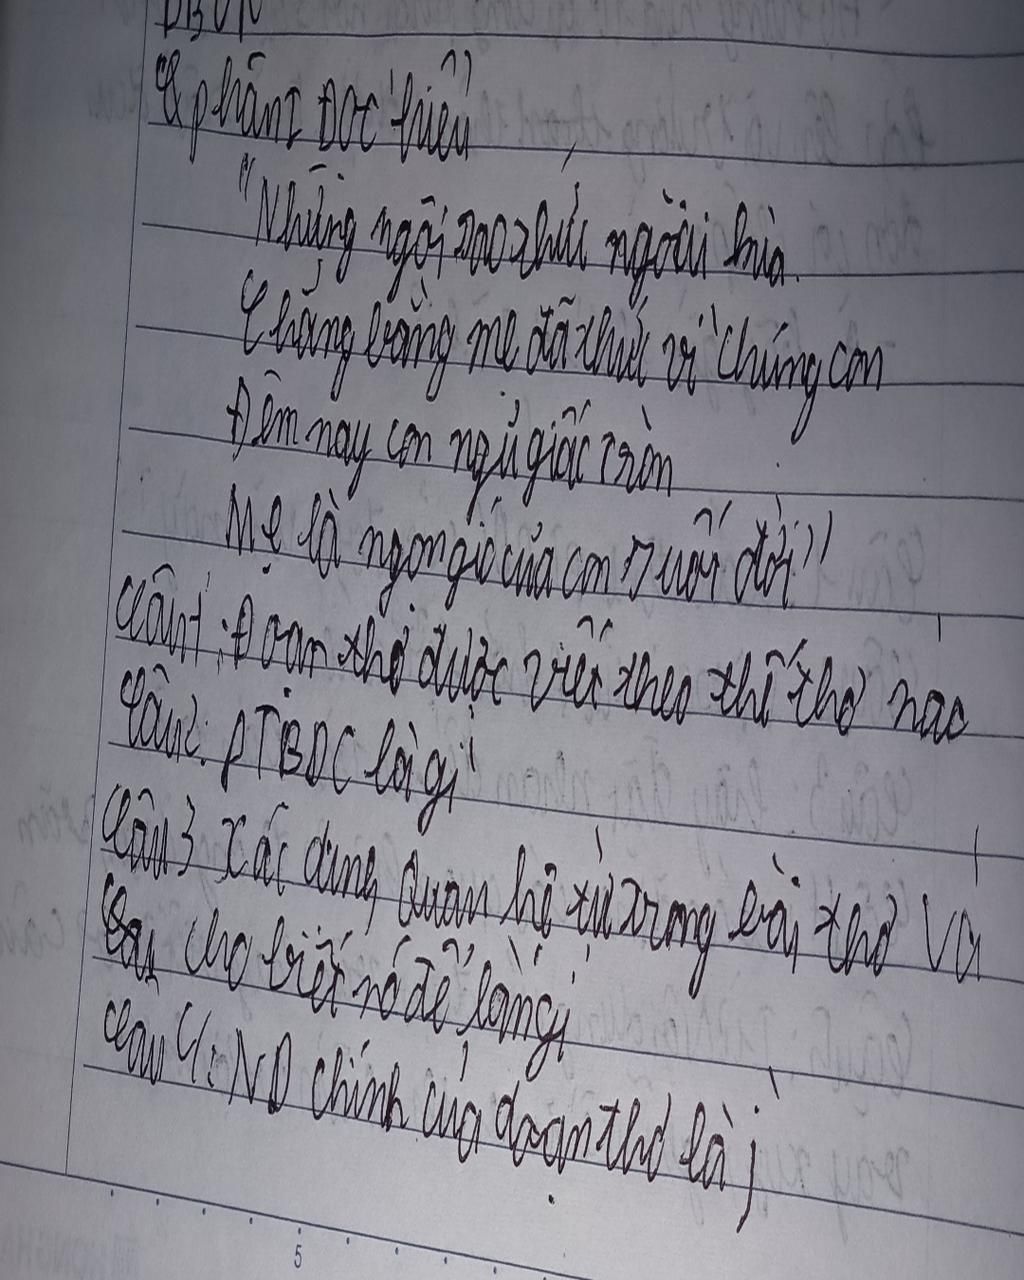 phần I Đọc hiểu
"Những ngôi sao thức ngoài kia
Chẳng bằng mẹ đã thức vì chúng con
Đêm nay con ngủ giấc tròn
Mẹ là ngọn gió của con suốt đời"
Câu 1: Đoạn thơ được viết theo thể thơ nào
Câu 2: PTBĐC là gì
Câu 3 Xác định quan hệ từ trong bài thơ và
cho biết nó để làm gì
Câu 4: ND chính của đoạn thơ là j
5